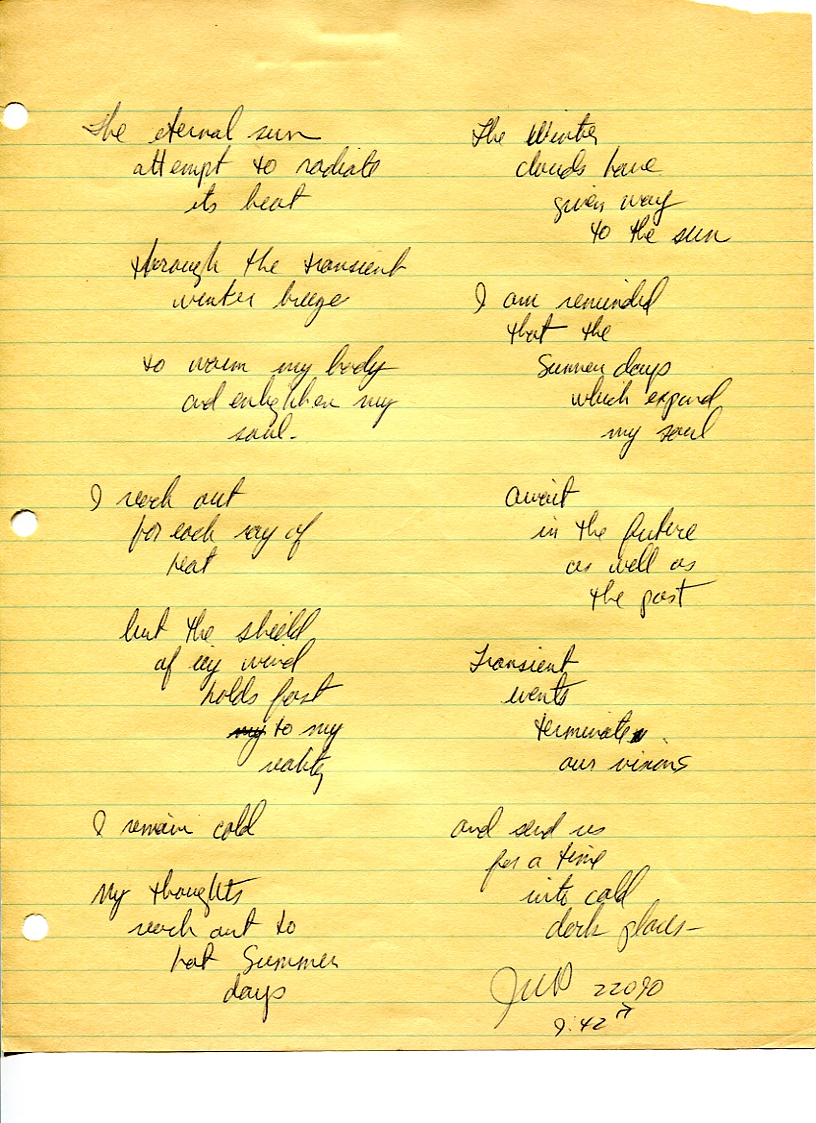 The eternal sun
attempt to radiate
its heat
through the transient
winter breeze
to warm my body
and enlighten my
soul.
I reach out
for each ray of
heat
but the shield
of icy wind
holds fast
my to my
reality
I remain cold
My thoughts
reach out to
hot Summer
days
The Winter
clouds have
given way
to the sun
I am reminded
that the
Summer days
which expand
my soul
await
in the future
as well as
the past
Transient
events
terminate
our visions
and send us
for a time
into cold
dark places-
22090
9:42